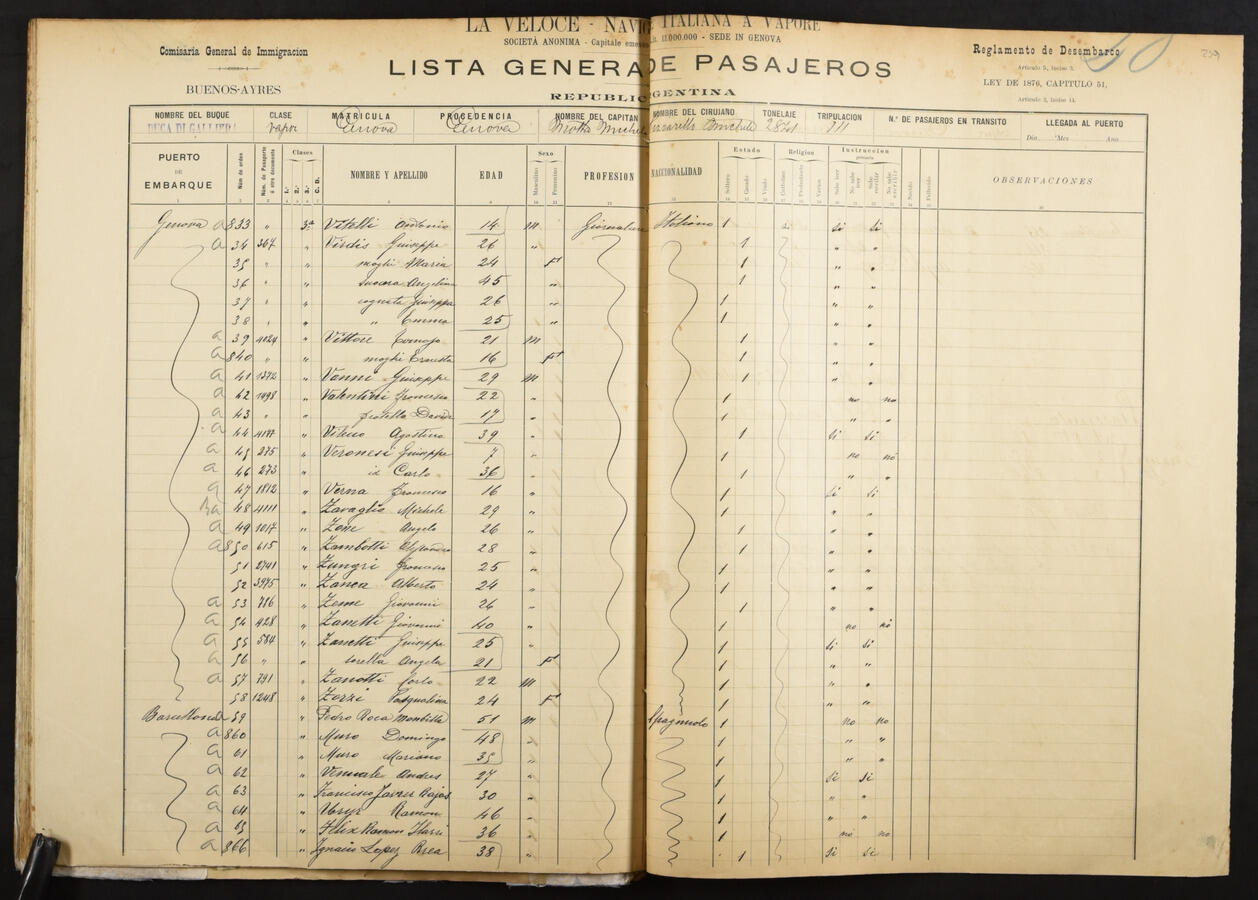 LA VELOCE - NAVIG ITALIANA A VAPORE
SOCIETÀ ANONIMA - Capitale emesso 11.000.000 - SEDE IN GENOVA
Comisaria General de Immigracion
BUENOS-AYRES
LISTA GENERA DE PASAJEROS
REPUBLIC GENTINA
Reglamento de Desembarco
Articulo 5, Inciso 3.
LEY DE 1876, CAPITULO 51,
Articulo 3, Inciso 14.
259
NOMBRE DEL BUQUE CLASE MATRICULA PROCEDENCIA NOMBRE DEL CAPITAN NOMBRE DEL CIRUJANO TONELAJE TRIPULACION N.º DE PASAJEROS EN TRANSITO LLEGADA AL PUERTO
DUCA DI GALLIERA vapor Genova Genova 2841 111 Dia Mes Ano
PUERTO DE EMBARQUE Núm de orden Núm. de Pasaporte ó otro documento Clases 1.ª 2.ª 3.ª C. D. NOMBRE Y APELLIDO EDAD Sexo Masculino Femenino PROFESION NACCIONALIDAD Estado Soltero Casado Viudo Religion Catolico Protestante Varios Instruccion Sabe leer No sabe leer Sabe escribir No sabe escribir Nacido Fallecido OBSERVACIONES
Genova a 833 " 3ª Vitelli Antonio 14 m Giornaliere Italiana 1 si si
a 34 367 " Virdis Giuseppe 26 " 1 " "
35 " " moglie Maria 24 F 1 " "
36 " " suocera Angelina 45 " 1 " "
37 " " cognata Giuseppa 26 " 1 " "
38 " " " Emma 25 " 1 " "
a 39 4024 " Vittore 21 m 1 " "
a 840 " " moglie Ernesta 16 F 1 " "
a 41 1372 " Vanni Giuseppe 29 m 1 " "
a 42 1498 " Valentini Francesco 22 " 1 no no
a 43 " " fratello Davide 17 " 1 " "
a 44 " Agostino 39 " 1 si si
a 45 275 " Veronesi Giuseppe 7 " 1 no no
a 46 273 " id Carlo 36 " 1 " "
a 47 1812 " Verna Francesco 16 " 1 si si
a 48 4111 " Zavaglia Michele 29 " 1 " "
a 49 1017 " Zone Angelo 26 " 1 " "
a 850 615 " Zambotti 28 " 1 " "
51 2741 " Zungri Francesco 25 " 1 " "
52 3975 " Zanca Alberto 24 " 1 " "
a 53 786 " Zeme Giovanni 26 " 1 " "
a 54 428 " Zanetti Giovanni 40 " 1 no nó
a 55 584 " Zanetti Giuseppe 25 " 1 si si
a 56 " " sorella Angela 21 F 1 " "
a 57 791 " Zanotti Carlo 22 m 1 " "
58 1248 " Zorzi Pasqualina 24 F 1 " "
Barcellona 59 " Pedro Roca 51 m Spagnuolo 1 no no
a 860 " Muro Domingo 48 " 1 " "
a 61 " Muro Mariano 35 " 1 " "
a 62 " Andres 27 " 1 si si
a 63 " Francisco Javier Rajas 30 " 1 " "
a 64 " Ramon 46 " 1 " "
a 65 " Felix Ramon 36 " 1 no no
a 866 " Ignacio Lopez 38 " 1 si si